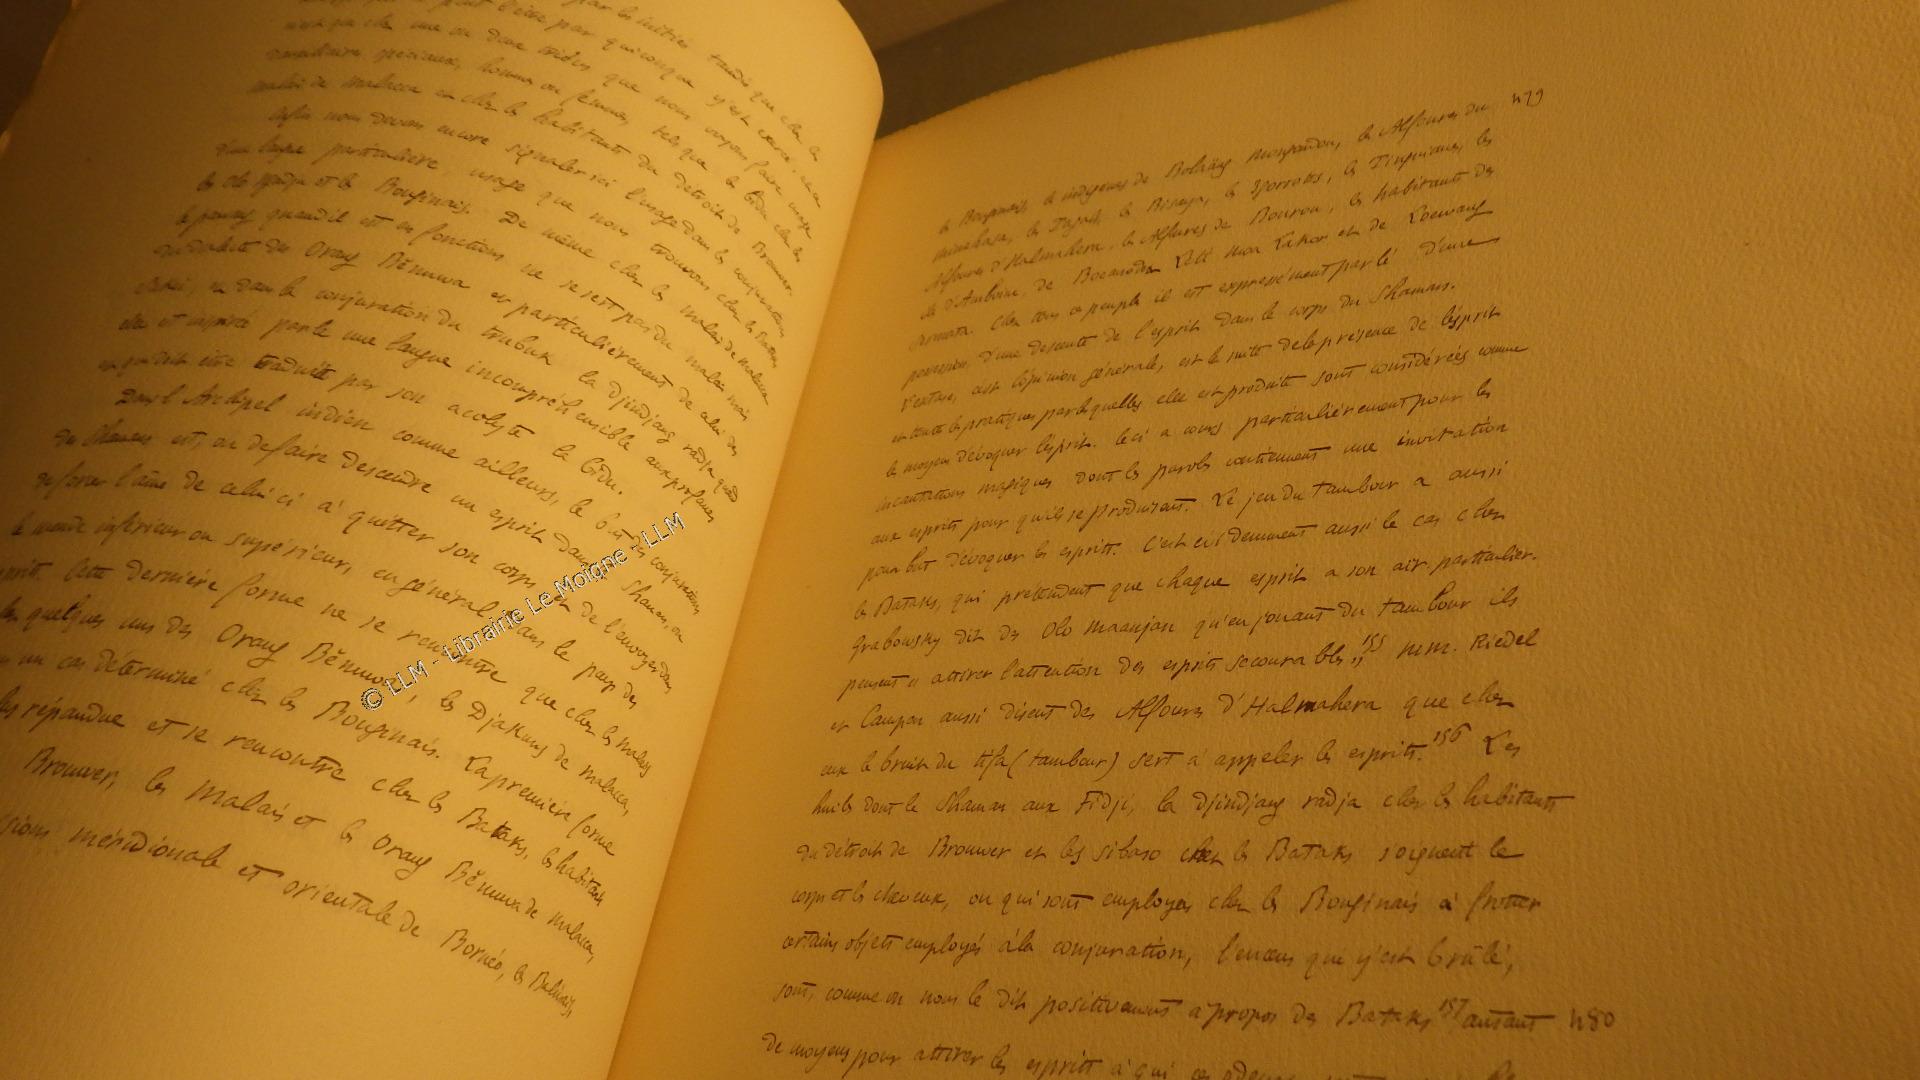 par les initiés tandis que chez les
peut l'être par quiconque s'y est exercé
chez une ou deux tribus que nous voyons faire usage
spéciaux, homme ou femme, tels que le bidu chez les
malais de malacca et chez les habitants du détroit de Brouwer.
Enfin nous devons encore signaler ici l'usage dans les conjurations
d'un langue particulière, usage que nous trouvons chez les Bataks
les olo ngadju et les Bouginais. De même chez les malais de malacca
le pawang quand il est en fonctions ne se sert pas du malais mais
du dialecte des Orang Bĕnuwa et particulièrement de celui des
Sakei, et dans la conjuration du trubuk la djindjang radja quand
elle est inspirée parle une langue incompréhensible aux profanes
et qui doit être traduite par son acolyte la bidu.
Dans l'Archipel indien comme ailleurs, le but des conjurations
du Shaman est, ou de faire descendre un esprit dans le Shaman, ou
de forcer l'âme de celui ci à quitter son corps et de l'envoyer dans
le monde inférieur ou supérieur, en général dans le pays des
esprits. Cette dernière forme ne se rencontre que chez les malais
quelques uns des Orang Bĕnuwa, les Djakuns de malacca,
un cas déterminé chez les Bouginais. La première forme
répandue et se rencontre chez les Bataks, les habitants
Brouwer, les malais et les Orang Bĕnuwa de malacca,
méridionale et orientale de Bornéo, les Balinais,
© LLM - Librairie Le Moigne - LLM
les Bouginais les indigènes de Bolaäng mongondou, les Alfoures du 479
minahasa, les Tagals, les Bisaya, les Ygorrotes, les Tinguianes, les
Alfoures d'Halmahera, les Alfoures de Bourou, les habitants des
iles d'Amboine, de Leti moa Lakor et de Loewang
Sermata. Chez tous ces peuples il est expressément parlé d'une
possession, d'une descente de l'esprit dans le corps du Shaman.
L'extase, c'est l'opinion générale, est la suite de la présence de l'esprit
et toutes les pratiques par lesquelles elle est produite sont considérées comme
le moyen d'évoquer l'esprit. Ceci a cours particulièrement pour les
incantations magiques dont les paroles contiennent une invitation
aux esprits pour qu'ils se produisent. Le jeu du tambour a aussi
pour but d'évoquer les esprits. C'est évidemment aussi le cas chez
les Bataks, qui prétendent que chaque esprit a son air particulier.
Grabowsky dit des Olo Maanjan qu'en jouant du tambour ils
pensent „ attirer l'attention des esprits secourables „ 155 MM. Riedel
et Campen aussi disent des Alfoures d'Halmahera que chez
eux le bruit du tifa (tambour) sert à appeler les esprits. 156 Les
huiles dont le Shaman aux Fidji, la djindjang radja chez les habitants
du détroit de Brouwer et les sibaso chez les Bataks soignent le
corps et les cheveux, ou qui sont employés chez les Bouginais à frotter
certains objets employés à la conjuration, l'encens que y'est brûlé,
sont, comme on nous le dit positivement à propos des Bataks 157 autant 480
de moyens pour attirer les esprits à qui ces